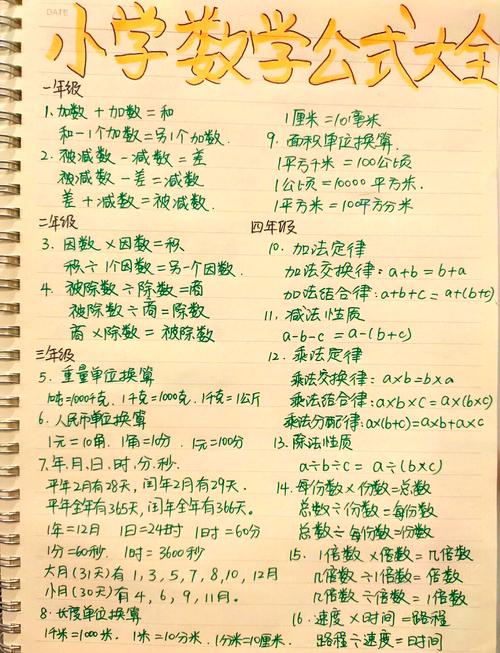 DATE
小学数学公式大全
一年级
1. 加数 + 加数 = 和
和 - 1个加数 = 另1个加数.
2. 被减数 - 减数 = 差
被减数 - 差 = 减数
差 + 减数 = 被减数.
二年级
3. 因数 × 因数 = 积
积 ÷ 1个因数 = 另一个因数.
4. 被除数 ÷ 除数 = 商
被除数 ÷ 商 = 除数
商 × 除数 = 被除数
三年级
5. 重量单位换算
1吨=1000千克. 1千克=1000克. 1千克=1公斤
6. 人民币单位换算
1元=10角. 1角=10分. 1元=100分
7. 年.月.日.时.分.秒.
平年2月有28天, 闰年2月有29天.
平年全年有365天, 闰年全年有366天.
1年=12月 1日=24时 1时=60分
1分=60秒. 1时=3600秒
大月(31天)有1,3,5,7,8,10,12月
小月(30天)有4,6,9,11月.
8. 长度单位换算
1千米=1000米. 1米=10分米. 1分米=10厘米.
1厘米=10毫米
9. 面积单位换算.
1平方千米 = 100公顷
1公顷 = 10000平方米.
1平方米 = 100平方分米
四年级
10. 加法定律
加法交换律: a+b = b+a
加法结合律: a+b+c = a+(b+c)
11. 减法性质
a-b-c = a-(b+c)
12. 乘法定律
乘法交换律: a×b = b×a
乘法结合律: a×b×c = a×(b×c)
乘法分配律: a×(b+c)=a×b+a×c
13. 除法性质
a÷b÷c = a÷(b×c)
14. 每份数×份数=总数
总数÷份数=每份数
总数÷每份数=份数
15. 1倍数×倍数=几倍数
几倍数÷1倍数=倍数
几倍数÷倍数=1倍数
16. 速度×时间=路程
路程÷速度=时间